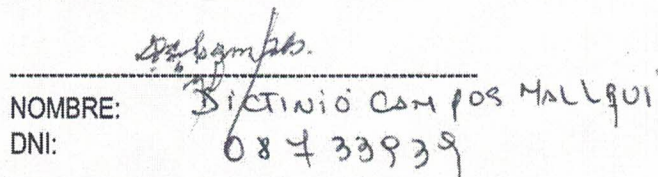 NOMBRE: DICTINIO CAMPOS MALLQUI
DNI: 08733939